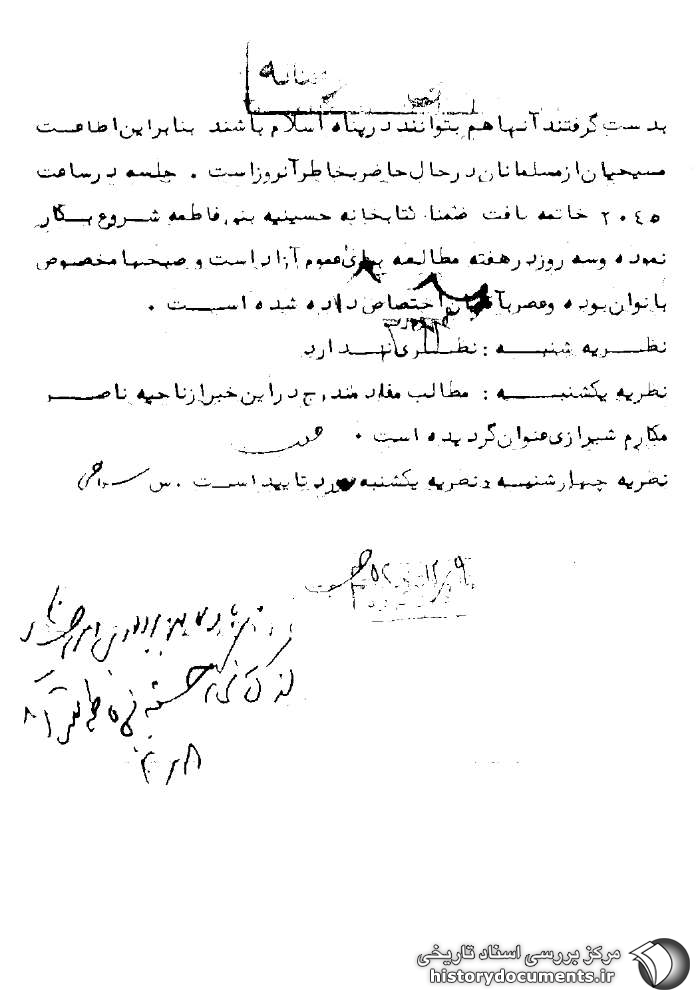 بدست گرفتند آنها هم بتوانند در پناه اسلام باشند بنابراین اطاعت
مسیحیان از مسلمانان در حال حاضر بخاطر آنروز است . جلسه در ساعت
۲۰۴۵ خاتمه یافت ضمنا کتابخانه حسینیه بنی فاطمه شروع بکار
نموده و سه روز در هفته مطالعه برای عموم آزاد است و صبحها مخصوص
بانوان بوده و عصر بآقایان اختصاص داده شده است .
نظریه شنبه : نظری ندارد
نظریه یکشنبه : مطالب مفاد مندرج در این خبر از ناحیه ناصر
مکارم شیرازی عنوان گردیده است .
نظریه چهارشنبه : نظریه یکشنبه مورد تایید است . س
مرکز بررسی اسناد تاریخی
historydocuments.ir